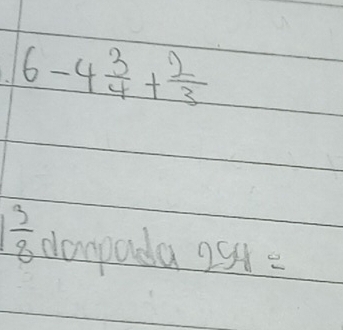 6 - 4 3/4 + 2/3
1 3/8 daripada 254 =